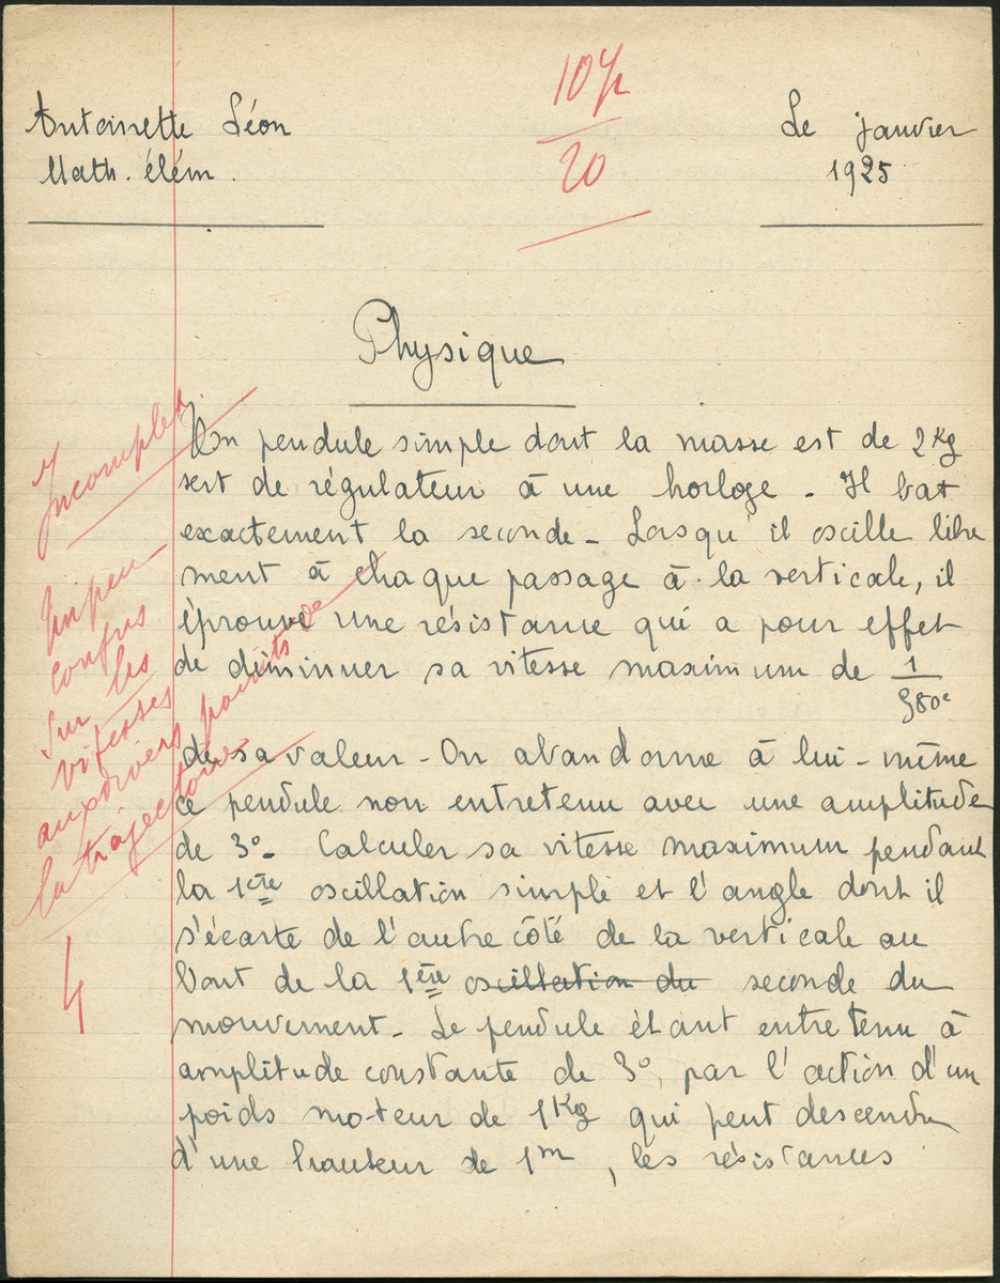 Antoinette Léon
Math. élém.
10 ½
20
Le janvier
1925
Physique
Un pendule simple dont la masse est de 2 Kg
sert de régulateur à une horloge - Il bat
exactement la seconde - Lorsqu'il oscille libre
ment à chaque passage à la verticale, il
éprouve une résistance qui a pour effet
de diminuer sa vitesse maximum de 1
380e
de sa valeur - On abandonne à lui-même
ce pendule non entretenu avec une amplitude
de 3° - Calculer sa vitesse maximum pendant
la 1ère oscillation simple et l'angle dont il
s'écarte de l'autre côté de la verticale au
bout de la 1ère oscillation du seconde du
mouvement - Le pendule étant entretenu à
amplitude constante de 3°, par l'action d'un
poids moteur de 1 Kg qui peut descendre
d'une hauteur de 1m, les résistances
Incomplet.
Un peu
confus
sur les
vitesses
aux divers points de
la trajectoire
4